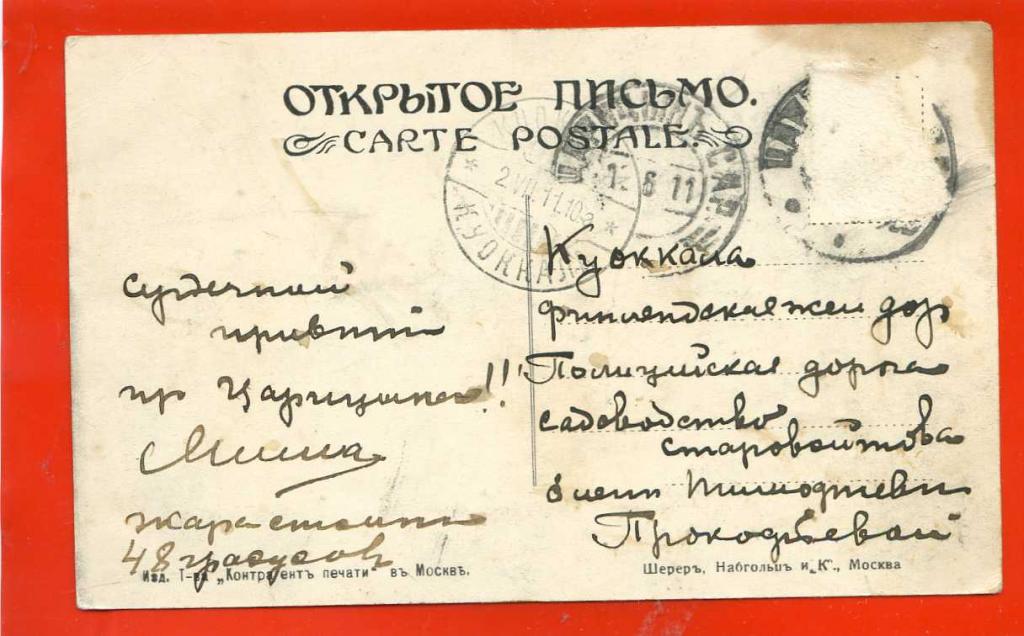 ОТКРЫТОЕ ПИСЬМО.
CARTE POSTALE.
2.VII.11.10
КУОККАЛА
6 11
ЦАР
сердечный
привет
пр Царицына!!
Миша
жара стоит
48 градусов
Куоккала
финлендская жел дор
Полицийская дорога
садоводство
старовойтова
Елени Тимофеевн
Прокофьевой
Изд. Т-ва „Контрагентъ печати" въ Москвѣ.
Шереръ, Набгольцъ и „К", Москва